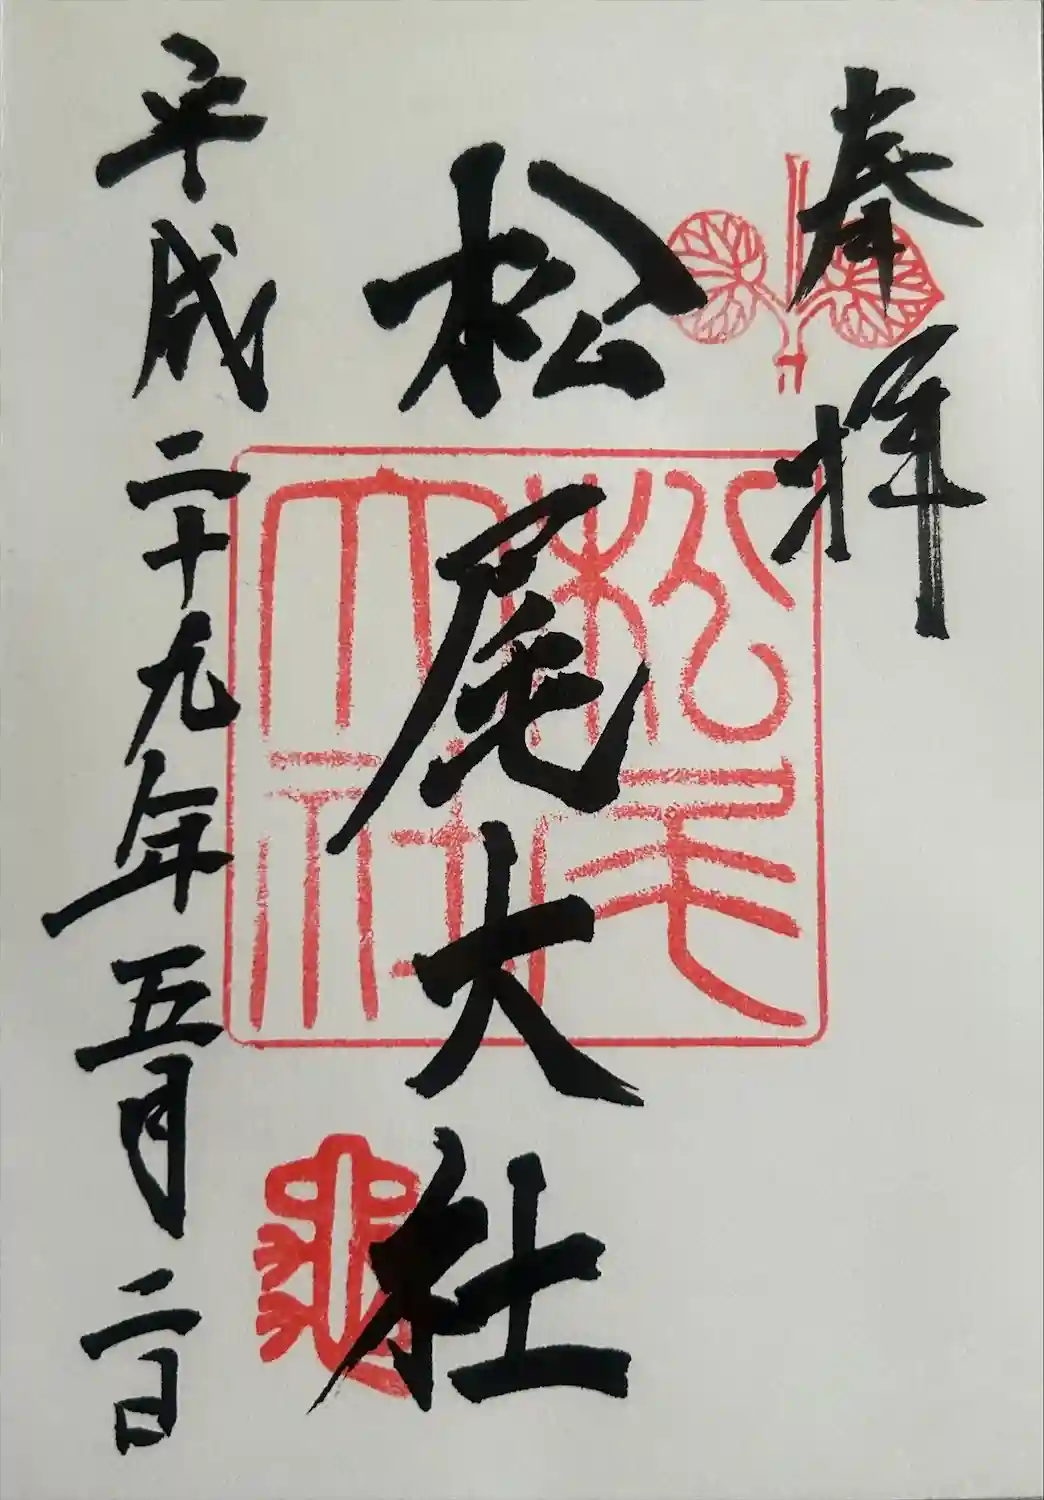 奉拝
松尾大社
平成二十九年五月二日
松尾
大社